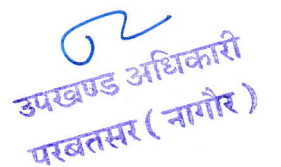 उपखण्ड अधिकारी
परबतसर ( नागौर )